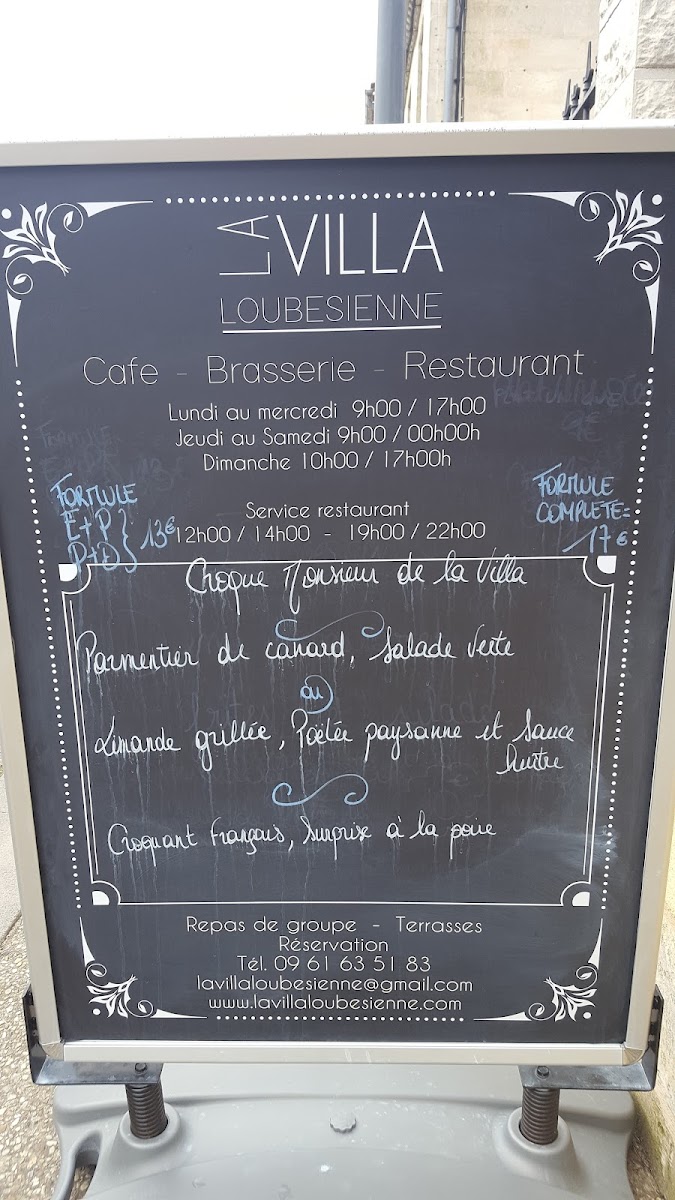 LA VILLA
LOUBESIENNE
Cafe - Brasserie - Restaurant
Lundi au mercredi 9h00 / 17h00
Jeudi au Samedi 9h00 / 00h00h
Dimanche 10h00 / 17h00h
Service restaurant
12h00 / 14h00 - 19h00 / 22h00
FORMULE
E+P
P+D
13€
FORMULE
COMPLETE=
17€
Croque Monsieur de la Villa
Parmentier de canard, Salade Verte
ou
Limande grillée, Poêlée paysanne et Sauce
huître
Croquant Français, Surprise à la poire
Repas de groupe - Terrasses
Réservation
Tél. 09 61 63 51 83
lavillaloubesienne@gmail.com
www.lavillaloubesienne.com